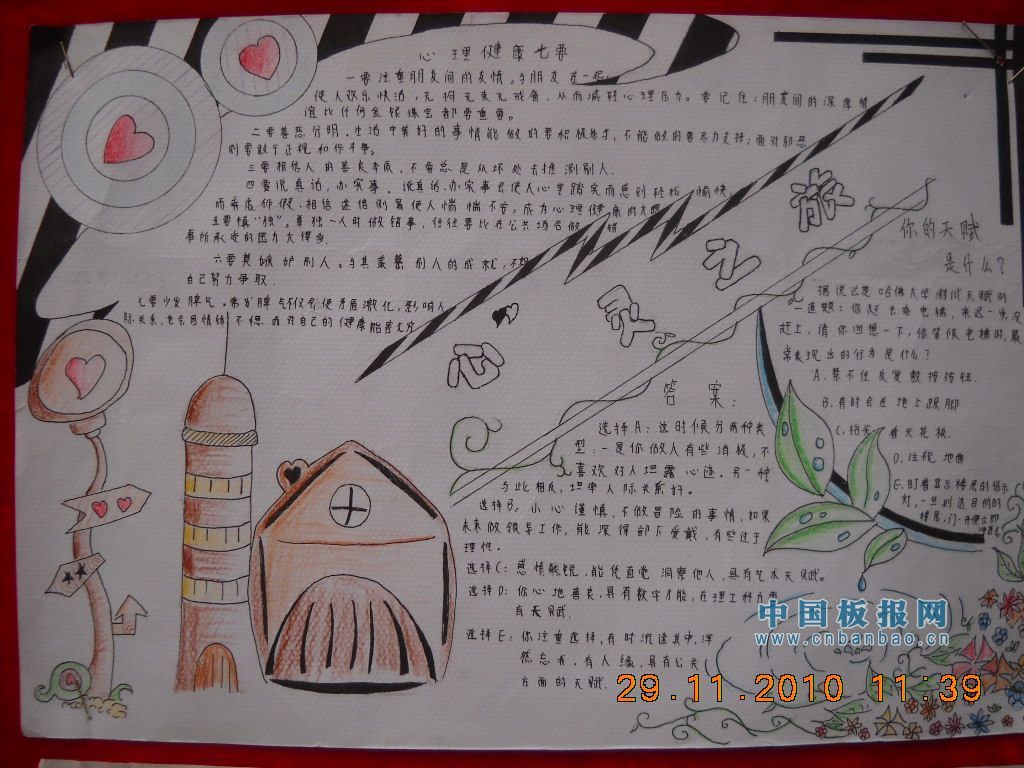 心理健康七要
一要注重朋友间的友情。与朋友在一起,
使人欢乐快活,无拘无束无戒备,从而减轻心理压力。要记住:朋友间的深厚情
谊比任何金银珠宝都要重要。
二要善恶分明。生活中美好的事情能做的要积极动手,不能做的要尽力支持;面对邪恶
则要敢于正视和作斗争。
三要相信人的善良本质,不要总是从坏处去推测别人。
四要说真话,办实事。说真话,办实事会使人心里踏实而感到轻松、愉快,
而弄虚作假,相信迷信则易使人惴惴不安,成为心理健康的大
五要慎“独”。单独一人时做错事,往往要比在公共场合做错
事所承受的压力大得多。
六要莫嫉妒别人。与其羡慕别人的成就,不如
自己努力争取。
七要少生脾气。常发脾气不仅会使矛盾激化,影响人
际关系,也会因情绪不稳,而对自己的健康贻害尤大
心灵之旅
你的天赋
是什么?
据说这是哈佛大学测试天赋的
一道题:你赶去乘电梯,来迟一步,没
赶上,请你回想一下,你等候电梯时,最
常表现出的行为是什么?
A、禁不住反复数按按钮.
B、有时会在地上跺脚
C、抬头看天花板.
D、注视地面
E、盯着显示楼层的指示
灯,一旦到达目的的
楼层,门一开便立即
答案:
选择A:这时候分两种类
型:一是你做人有些消极,不
喜欢对人坦露心迹。另一种
与此相反,坦率人际关系好。
选择B、小心谨慎,不做冒险的事情,如果
未来做领导工作,能深得部下爱戴,有些过于
理性。
选择C:感情敏锐,能凭直觉洞察他人,具有艺术天赋。
选择D:你心地善良,具有数字才能,在理工科方面
有天赋.
选择E:你注重选择,有时沉迷其中,浑
然忘我。有人缘,具有公关
方面的天赋.
中国板报网
www.cnbanbao.cn
29.11.2010 11:39